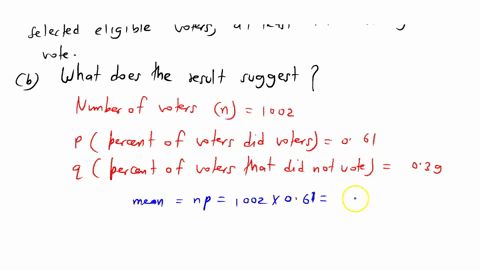 selected eligible voters, at least
vote.
(b) What does the result suggest?
Number of voters (n) = 1002
p (percent of voters did voters) = 0.61
q (percent of voters that did not vote) = 0.39
mean = np = 1002 × 0.61 = .